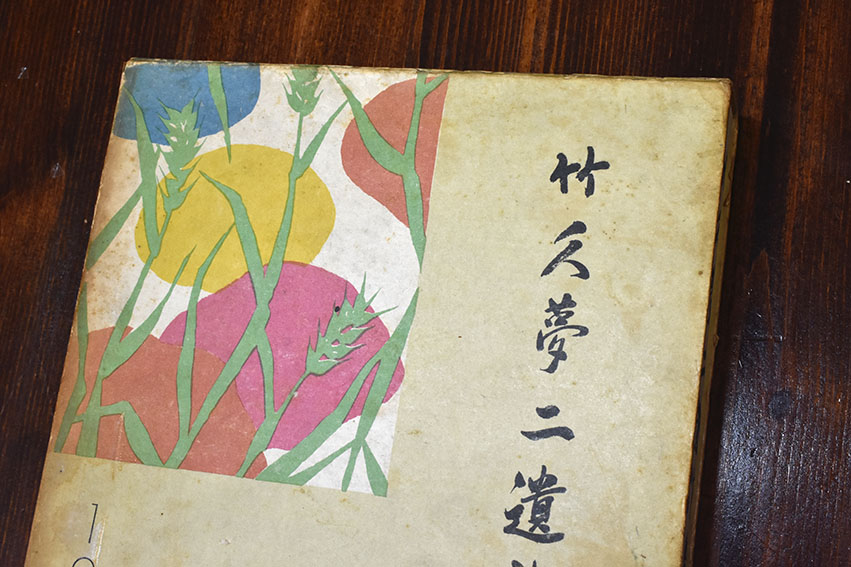 竹久夢二遺
1